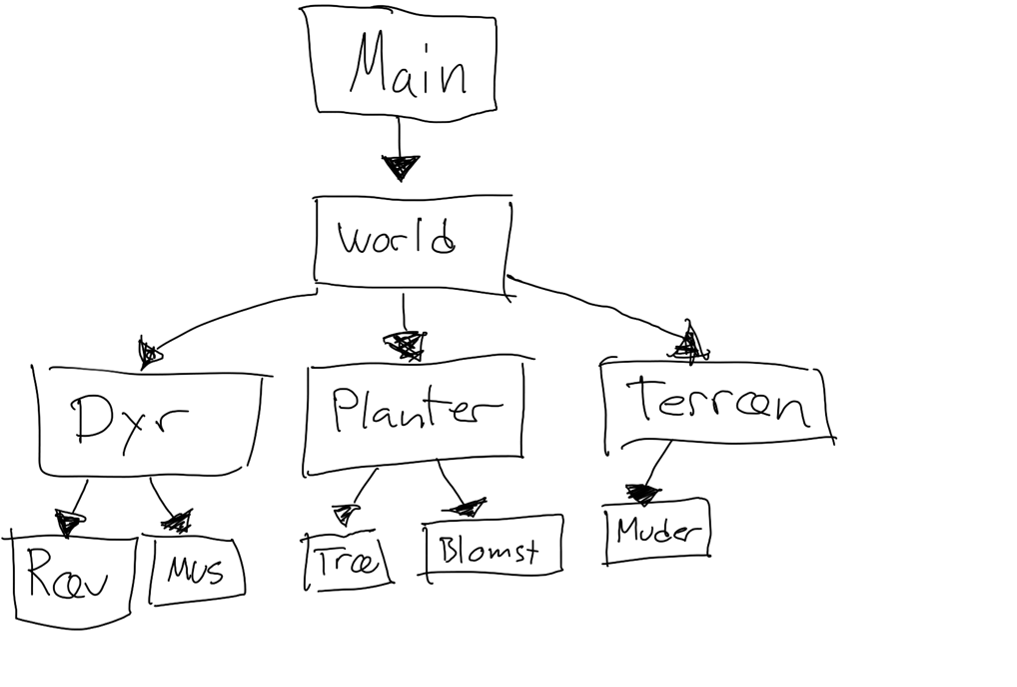 Main
World
Dyr
Planter
Terræn
Ræv
Mus
Træ
Blomst
Muder